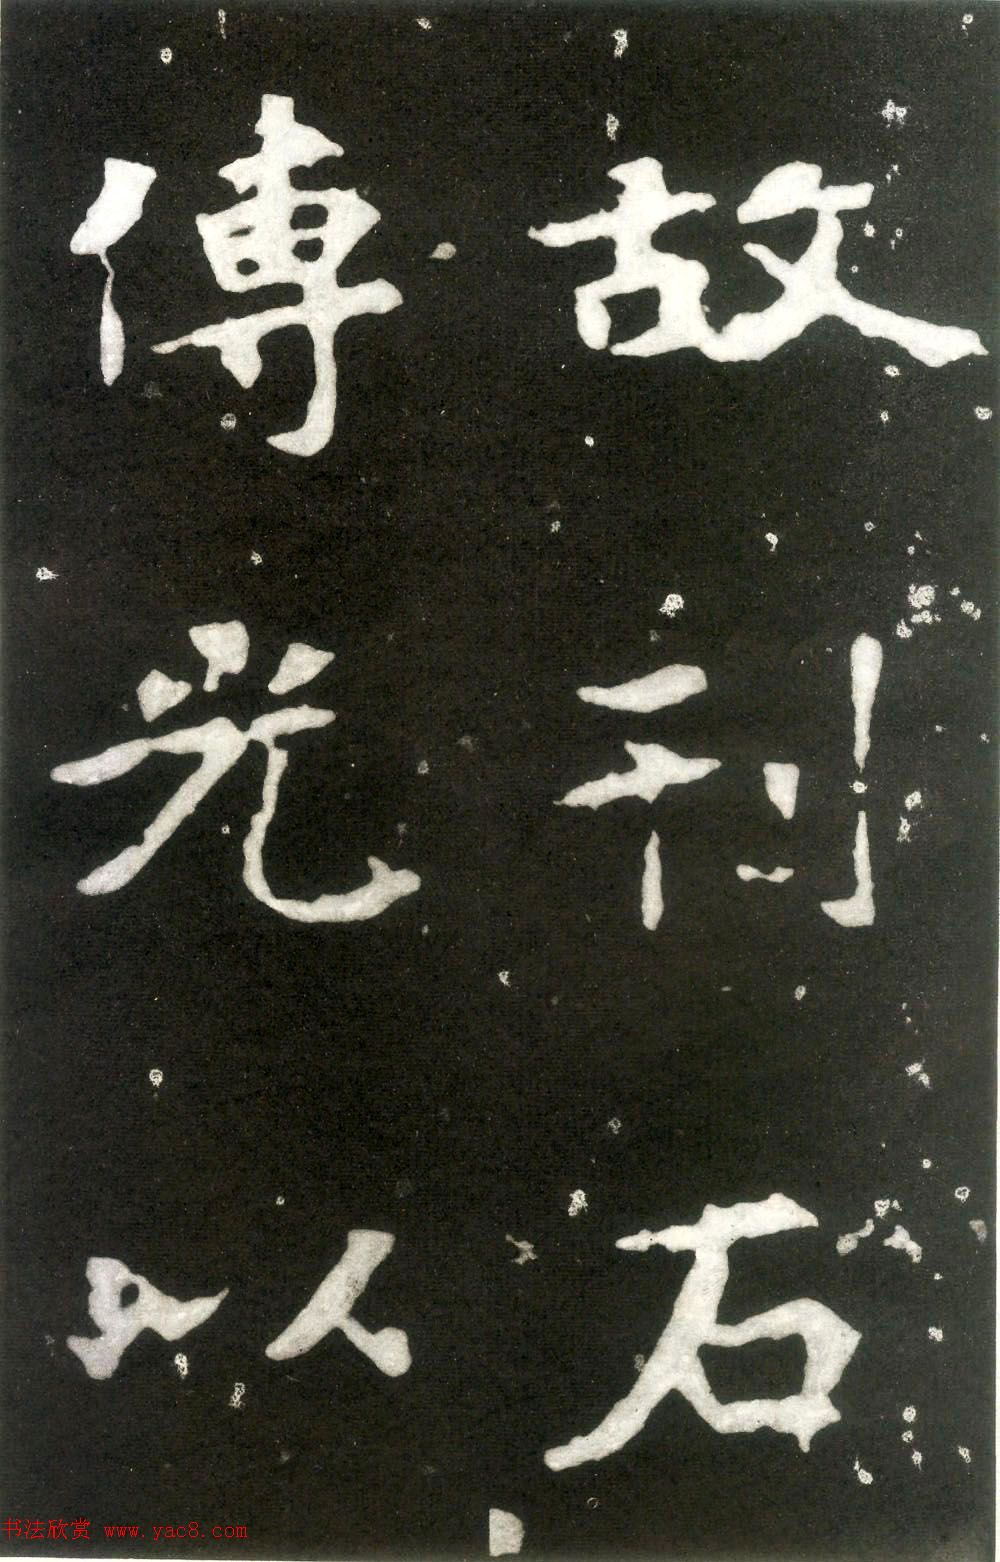 故刊石
傳光以
书法欣赏 www.yac8.com